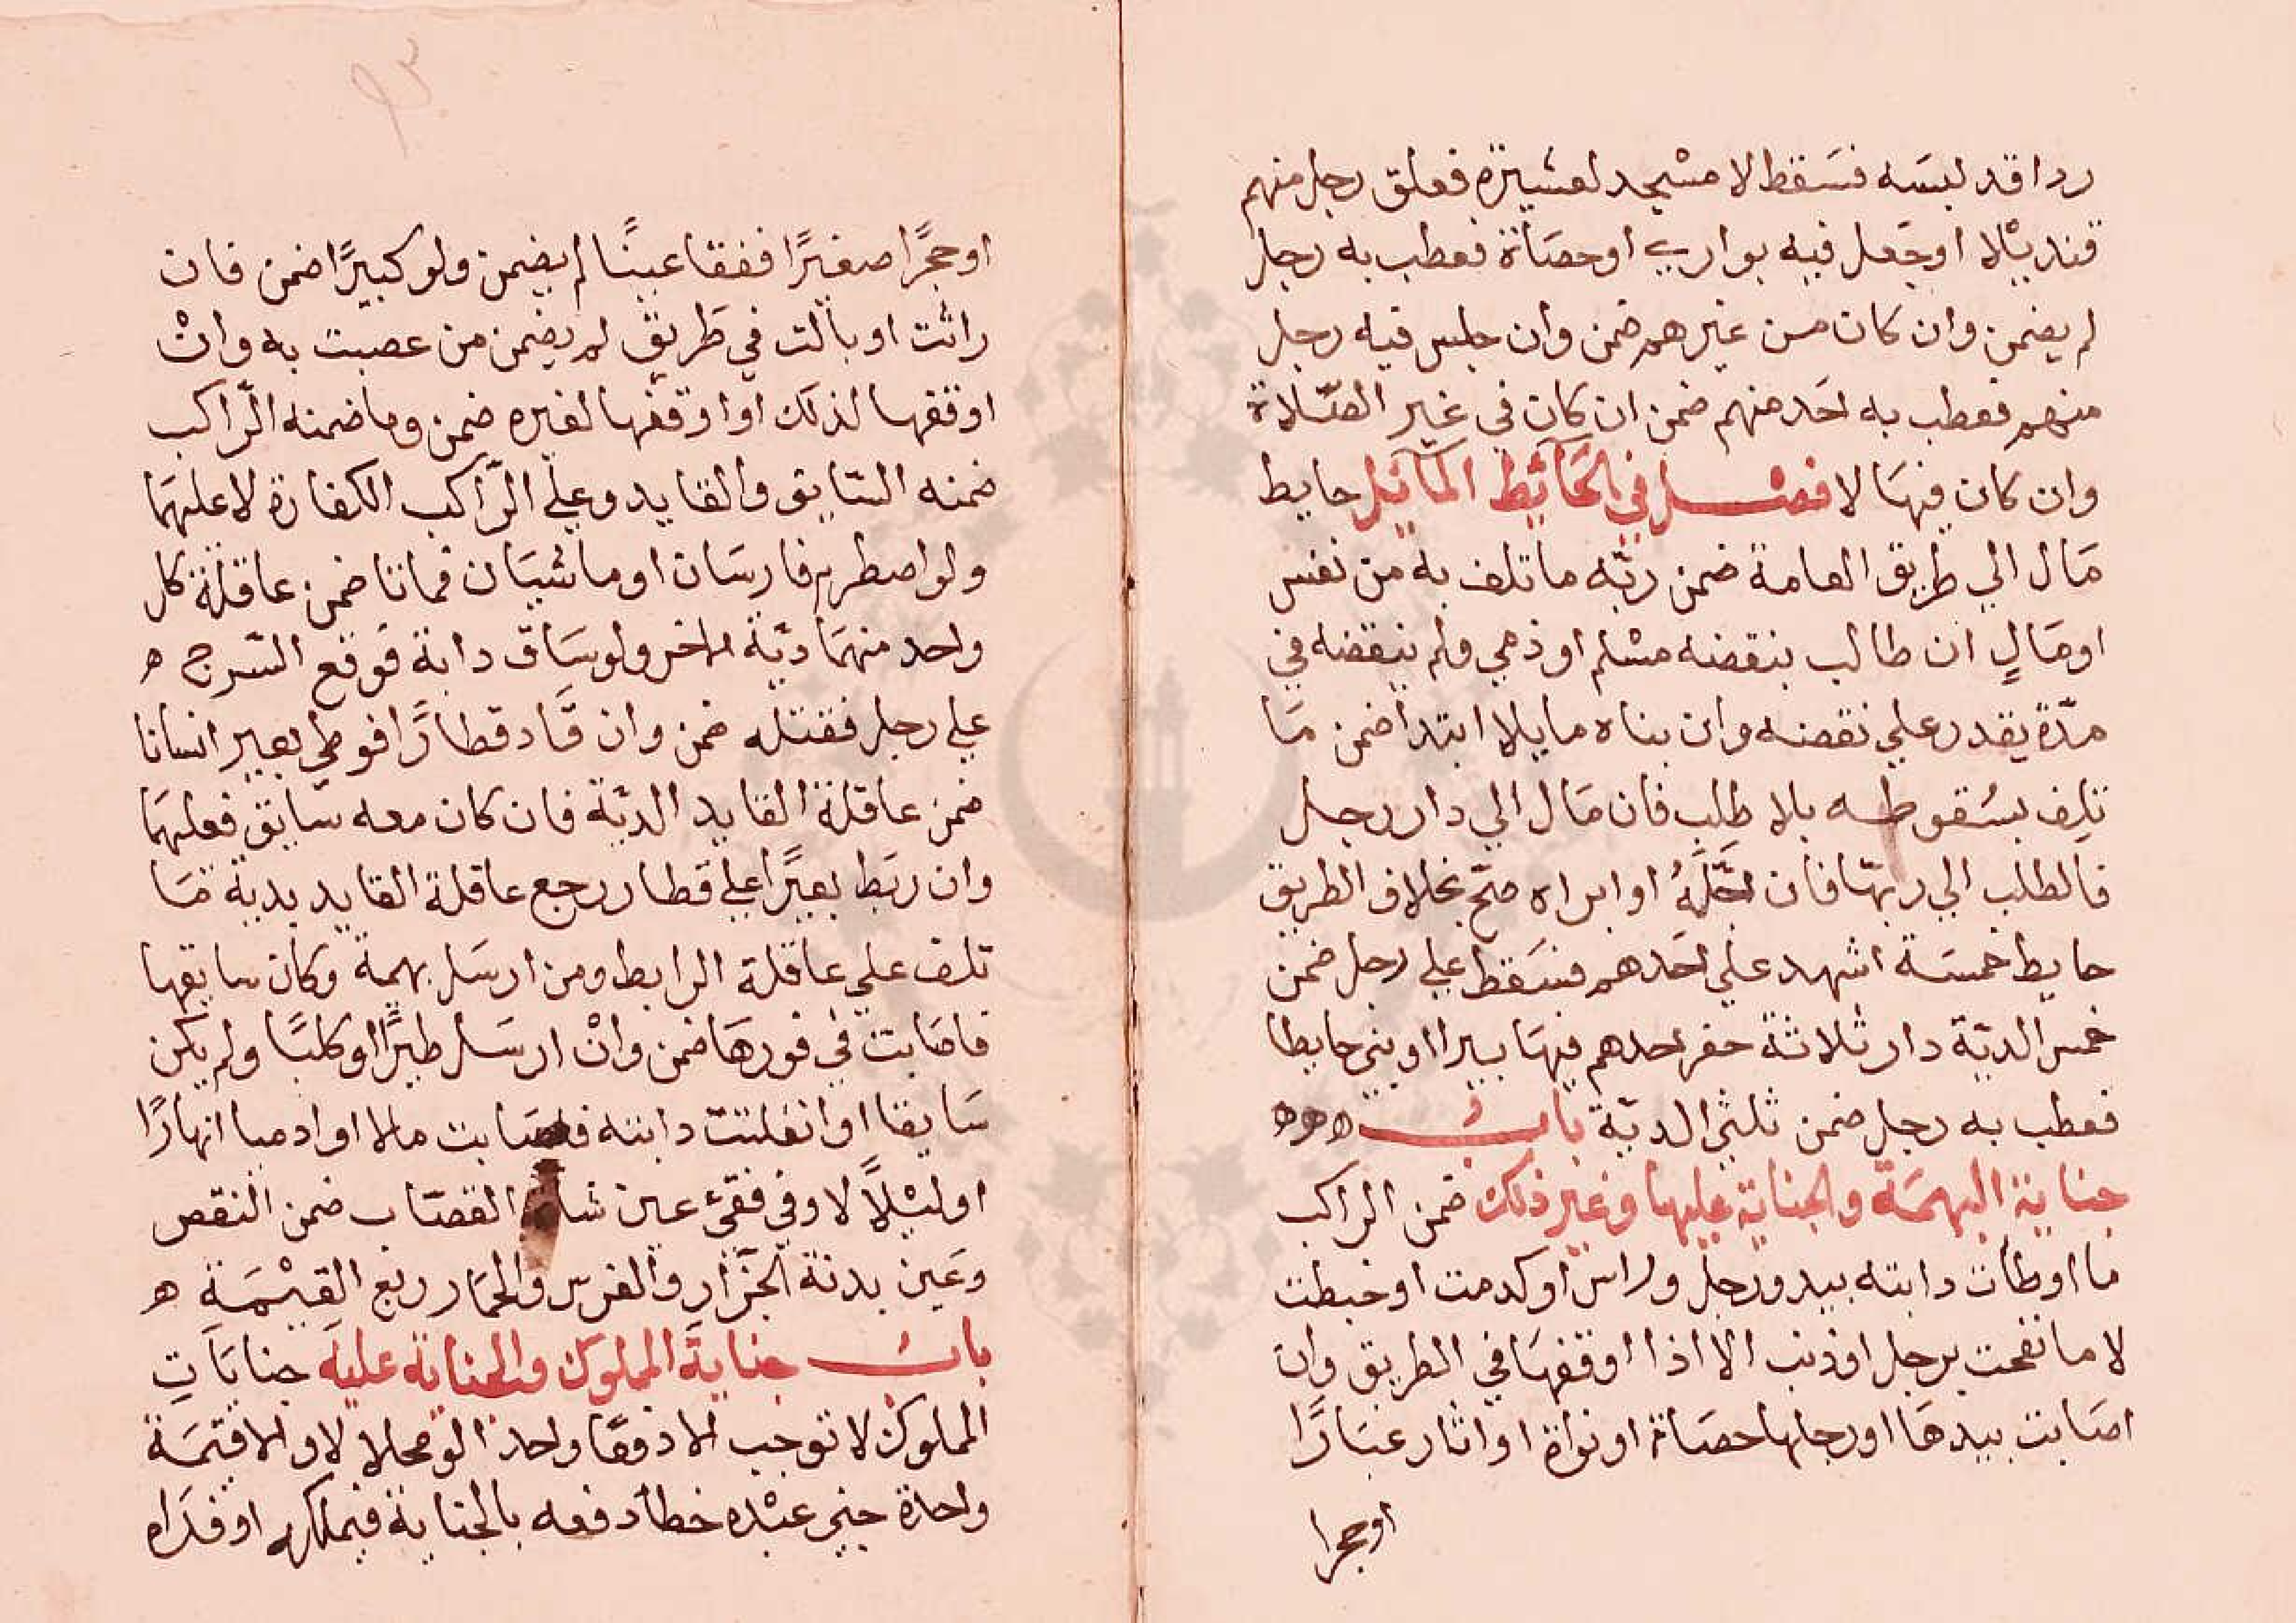 ردا قد لبسَه فسَقط لا مسْجد لعشيرة فعلق رجل منهم
قنديْلا او جَعل فيه بواري او حصَاة فعطب به رجل
لم يضمن وان كان من غيرهم ضمن وان جلس فيه رجل
منهم فعطب به احَد منهم ضمن ان كان في غير الصّلاة
وان كان فيهَا لا فصْل في الحَائط المَائل حايط
مَال الي طريق العامة ضمن ربّه ما تلف به من نفس
او مَالٍ ان طالب بنقضه مسْلم او ذمي ولم ينقضه في
مدّة يقدر علي نقضه وان بناه مايلا ابتدا ضمن مَا
تلِف بسُقوطه بلا طلب فان مَال الي دار رجل
فالطلب الي ربهّا فان اجَّلَهُ او ابراه صحّ بخلاف الطريق
حايط خمسَة اشهد علي احَدهم فسَقط علي رجل ضمن
خمس الديّة دار ثلاثة حفر احدهم فيهَا بيرا او بني حايطا
فعطب به رجل ضمن ثلثي الديّة بابُ ههه
جناية البهيمَة والجناية عليها وغير ذلك ضمن الراكب
ما اوطأت دابته بيد ورجل وراس او كدمت او خبطت
لا ما نفحت برجل او ذنب الا اذا اوقفهَا في الطريق وان
اصَابت بيدهَا او رجلها حصَاة او نواة او اثار غبَارًا
او حجرا
او حجرًا صغيرًا ففقا عينًا لم يضمن ولو كبيرًا ضمن فان
راثت او بالت في طَريق لم يضمن من عصبت به وانْ
اوقفها لذلك او اوقفها لغيره ضمن وما ضمنه الرّاكب
ضمنه السّايق والقايد وعلي الرّاكب الكفارة لا عليهمَا
ولو اصطرم فارسَان او ماشيَان فماتا ضمن عاقلة كل
واحد منهمَا ديّة الاخر ولو سَاق دابة فوقع السّرج ه
علي رجل فقتله ضمن وان قَاد قطارًا فوطي بعير انسانا
ضمن عاقلة القايد الديّة فان كان معه سَايق فعليهمَا
وان ربَط بعيرًا علي قطار رجع عاقلة القايد بدية مَا
تلف علي عاقلة الرابط ومن ارسَل بهمة وكان سايقها
فاصَابت في فورهَا ضمن وانْ ارسَل طيرًا او كلبًا ولم يكن
سَايقا او انفلتت دابته فاصَابت مالا او ادميا نهارًا
او ليْلاً لا وفي فقئ عين شاة القصّاب ضمن النقص
وعَين بدنة الجزّار والفرس والحمَار ربع القيْمَة ه
بابُ جنايةَ المملوك والجناية عليه جنايَاتِ
المملوك لا توجب الا دفعًا واحدا لو محلا لا والا قيمَة
واحدة جني عبْده خطأ دفعه بالجناية فيملكه او فدَاه